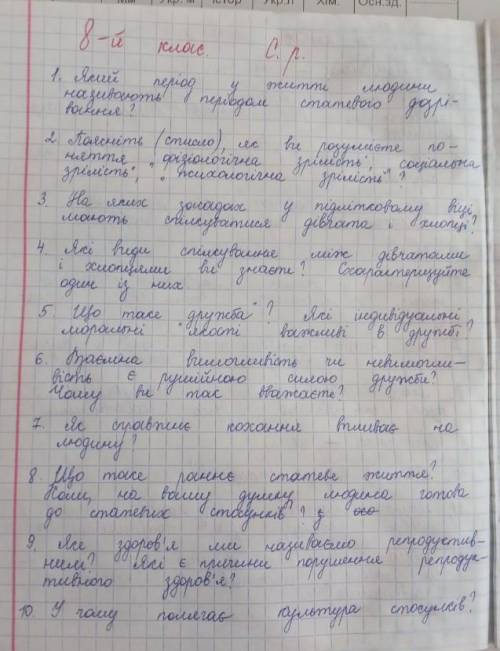 Мм Укр. м Істор Укр.л Хім. Осн.зд.
8-й клас. С.р.
1. Який період у житті людини
називають періодом статевого дозрі-
вання?
2. Поясніть (стисло), як ви розумієте по-
няття „фізіологічна зрілість", „соціальна
зрілість", „психологічна зрілість"?
3. На яких засадах у підлітковому віці
мають спілкуватися дівчата і хлопці?
4. Які види спілкування між дівчатами
і хлопцями ви знаєте? Схарактеризуйте
один із них
5. Що таке „дружба"? Які індивідуальні
моральні якості важливі в дружбі?
6. Взаємна вимогливість чи невимогли-
вість є рушійною силою дружби?
Чому ви так вважаєте?
7. Як справжнє кохання впливає на
людину?
8. Що таке раннє статеве життя?
Коли, на вашу думку, людина готова
до статевих стосунків?
9. Яке здоров'я ми називаємо репродуктив-
ним? Які є причини порушення репродук-
тивного здоров'я?
10. У чому полягає культура стосунків?